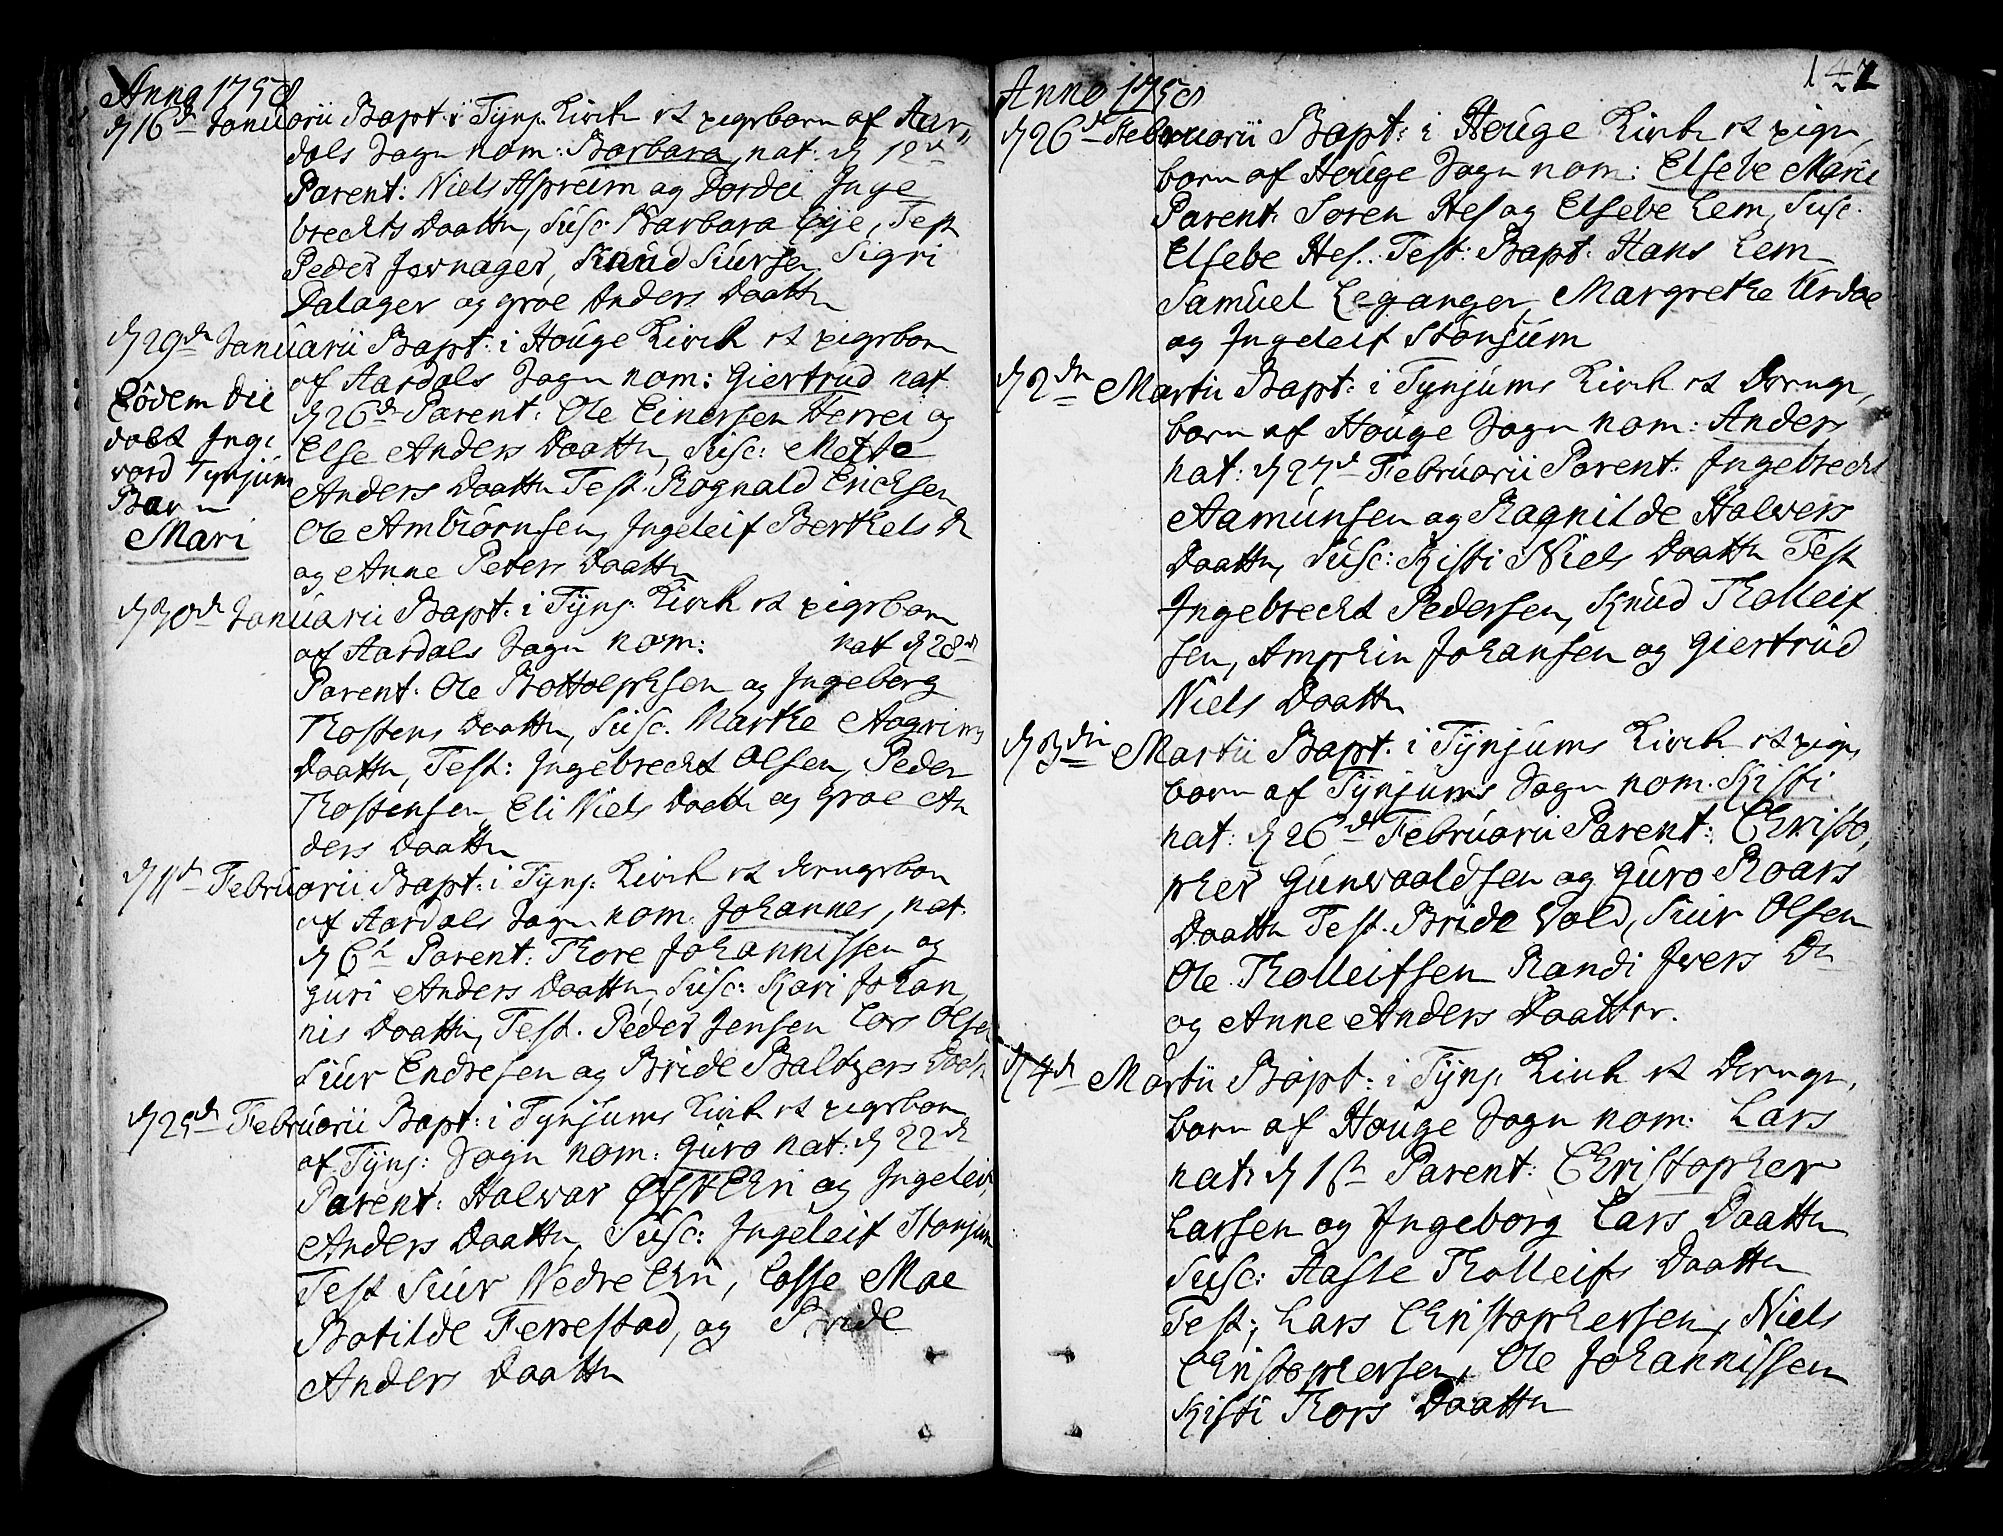 Anno 1758
d 16de Januarii Bapt: i Tÿnj: Kirch et pigebarn af Aar,
dals Sogn nom: Barbara, nat: d 12t
Parent: Niels Aspreim og Dordei Inge
brechts Daatter, Susc: Barbara Eÿe, Test
Peder Jernager, Knud Siursen, Sigri
Dalager og Groe Anders Daatter
d 29de Januarii Bapt: i Houge Kirch et pigebarn
af Aardals Sogn nom: Giertrud nat
d 26de Parent: Ole Einersen Herrei og
Else Anders Daatter, Susc: Mette
Anders Daatter Test. Rognald Erichsen
Ole Ambiörnsen, Ingeleif Berthels D
og Anne Peters Daatter
Eôdem die
døbt Inge
vord Tynjum
Barn
Mari
d 30de Januarii Bapt: i Tÿnj: Kirch et pigebarn
af Aardals Sogn nom: nat d 28d
Parent: Ole Bottolphsen og Ingeborg
Thostens Daatter, Susc. Marthe Aagrims
Daatter, Test: Ingebrecht Olsen, Peder
Thostensen, Eli Niels Daatter og Groe An
ders Daatter
d Februarii Bapt: i Tÿnj: Kirch et drengebarn
af Aardals Sogn nom: Johannes, nat.
d 6t Parent: Thore Johannissen og
Guri Anders Daatter, Susc: Kari Johan,
nis Daatter, Test. Peder Jensen Lars Olsen
Siur Endresen og Bride Baltzers Daat
d 25de Februarii Bapt: i Tynjums Kirch et pigebarn
af Tÿnj: Sogn nom: Guro nat: d 22d
Parent: Halvar Øfst Chri og Ingeleif
Anders Daatter, Susc: Ingeleif Stonjum
Test Siur Nedre Chri, Lasse Moe
Botilde Ferrestad, og Bride
Anders Daatter
147
Anno 1758
d 26de Februarii Bapt: i Houge Kirch et pige,
barn af Houge Sogn nom: Elsebe Marie
Parent: Soren Hes og Elsebe Lem, Susc.
Elsebe Hes. Test: Bapt: Hans Lem
Samuel Leganger, Margrethe Urdae
og Ingeleif Stonjum
d 2den Martii Bapt: i Tynjums Kirch et drenge,
barn af Houge Sogn nom: Anders
nat: d 27d Februarii Parent: Ingebrecht
Aamunsen og Ragnilde Halvers
Daatter, Susc: Kisti Niels Daatter Test
Ingebrecht Pedersen, Knud Tholleif
sen, Amphin Johansen og Giertrud
Niels Daatter
d 3die Martii Bapt: i Tÿnjums Kirch et pige,
barn af Tÿnjums Sogn nom. Kisti
nat: d 26d Februarii Parent: Christo,
pher Gunvaaldsen og Guro Roars
Daatter Test. Bride Vold, Siur Olsen
Ole Tholleifsen Randi Ivers D
og Anne Anders Daatter.
d 4de Martii Bapt: i Tÿnj: Kirch et drenge,
barn af Houge Sogn nom: Lars
nat: d 1st Parent: Christopher
Larsen og Ingeborg Lars Daatter
Susc: Aaste Tholleifs Daatter
Test: Lars Christophersen, Niels
Christophersen, Ole Johannissen
Kisti Thors Daatter